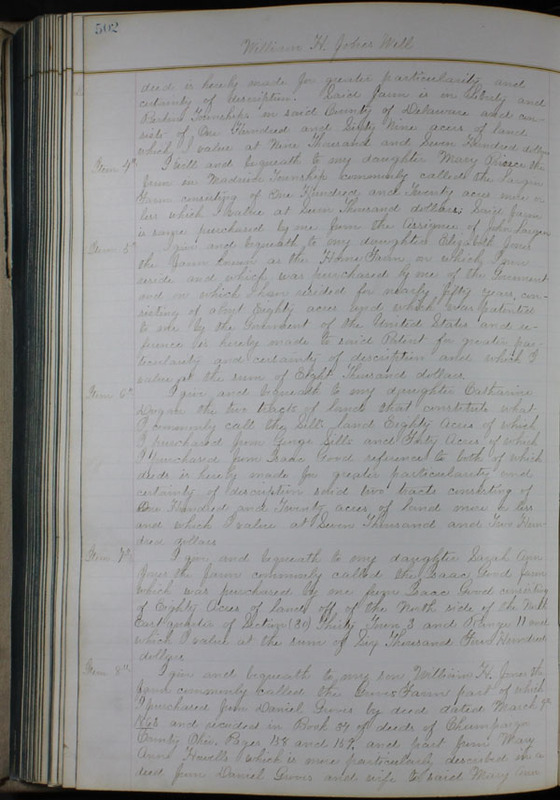 502
William H. Jones Will
deed is hereby made for greater particularity and
certainty of description. Said farm is in Liberty and
Townships in said County of Delaware and con-
sists of One Hundred and Sixty Nine acres of land
which I value at Nine Thousand and Seven Hundred dolls
Item 4th I will and bequeath to my daughter Mary the
farm in Township commonly called the
Farm consisting of One Hundred and Twenty acres more or
less which I value at Seven Thousand dollars; Said farm
is same purchased by me from the Assignee of John
Item 5th I give and bequeath to my daughter Elizabeth Jones
the farm known as the Home Farm on which I now
reside and which was purchased by me of the Government
and on which I have resided for nearly fifty years, con-
sisting of about Eighty acres and which was patented
to me by the Government of the United States and re-
ference is hereby made to said Patent for greater par-
ticularity and certainty of description and which I
value at the sum of Eight Thousand dollars
Item 6th I give and bequeath to my daughter Catharine
Dugan the two tracts of land that constitute what
I commonly call the land Eighty Acres of which
I purchased from George and Forty Acres of which
I purchased from Isaac Good reference to both of which
deeds is hereby made for greater particularity and
certainty of description said two tracts consisting of
One Hundred and Twenty acres of land more or less
and which I value at Seven Thousand and Two Hun-
dred dollars
Item 7th I give and bequeath to my daughter Sarah Ann
the farm commonly called the Isaac Good farm
which was purchased by me from Isaac Good consisting
of Eighty Acres of land off of the North side of the North
East quarter of Section (30) Thirty Town 3 and Range 11 and
which I value at the sum of Six Thousand Four Hundred
dollars
Item 8th I give and bequeath to my son William H. Jones the
farm commonly called the Farm part of which
I purchased from Daniel by deed dated March
and recorded in Book 37 of deeds of Champaign
County Ohio. Pages 158 and 159, and part from Mary
Ann which is more particularly described in a
deed from Daniel and wife to said Mary Ann